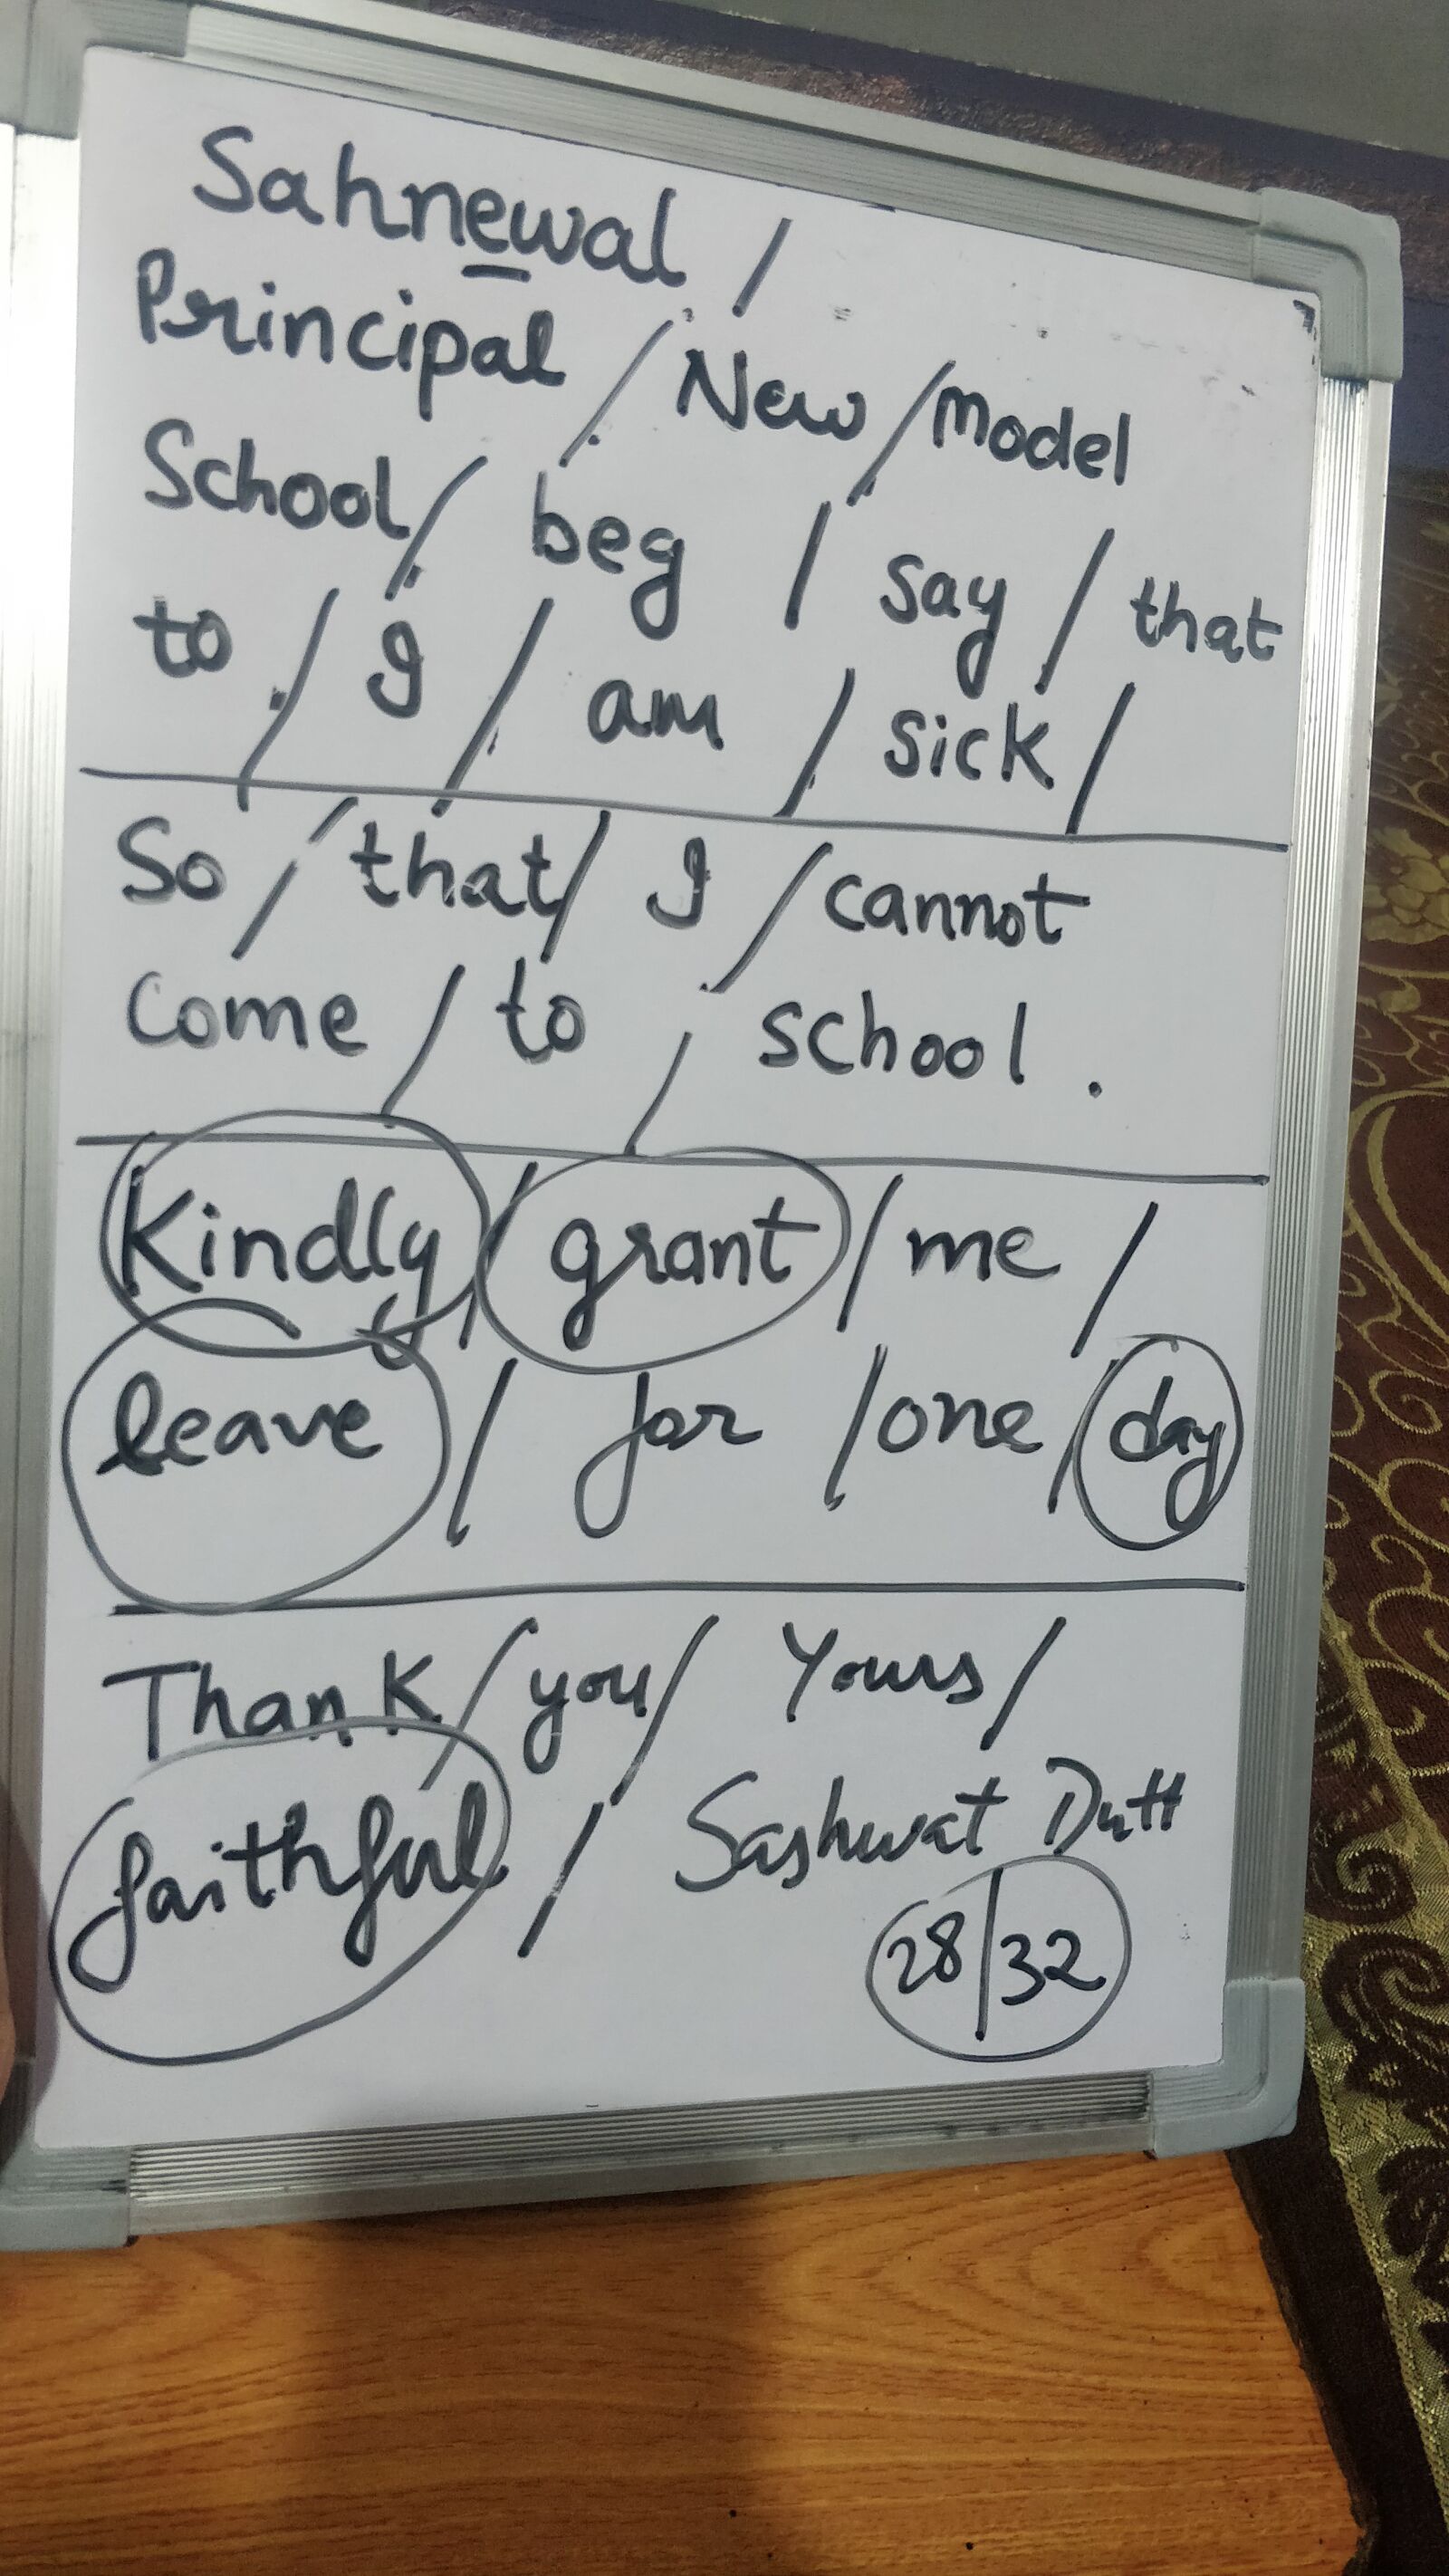 Sahnewal /
Principal / New / Model
School / beg / say / that
to / I / am / sick /
So / that / I / cannot
come / to / school .
Kindly / grant / me /
leave / for / one / day
Thank / you / Yours /
faithful / Sashwat Dutt
28/32